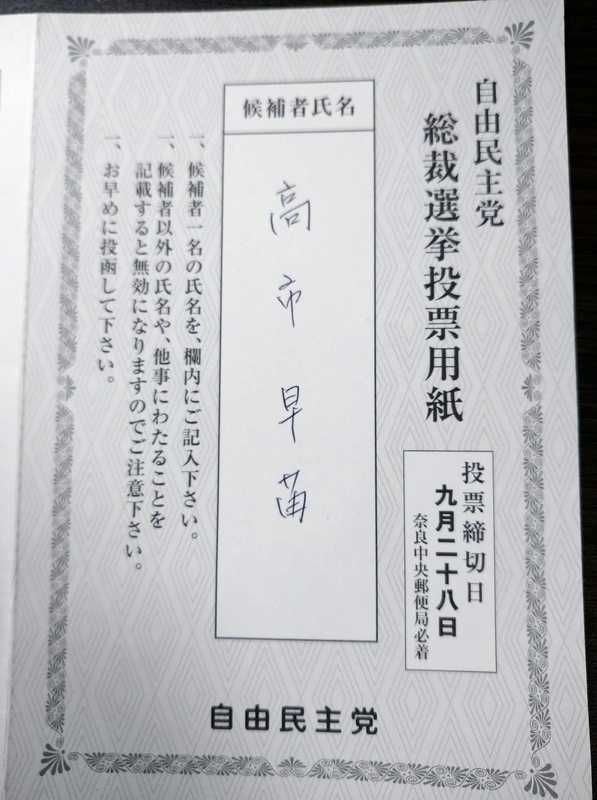 自由民主党
総裁選挙投票用紙
投票締切日
九月二十八日
奈良中央郵便局必着
候補者氏名
高市早苗
一、候補者一名の氏名を、欄内にご記入下さい。
一、候補者以外の氏名や、他事にわたることを
記載すると無効になりますのでご注意下さい。
一、お早めに投函して下さい。
自由民主党